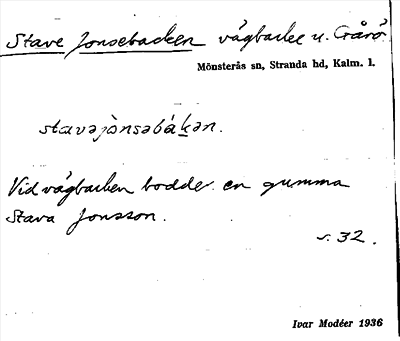 Stave Jonsebacken vägbacke u. Crårö.
Mönsterås sn, Stranda hd, Kalm. l.
stavəjònsəbákən.
Vid vägbacken bodde en gumma
Stava Jonsson.
s. 32.
Ivar Modéer 1936